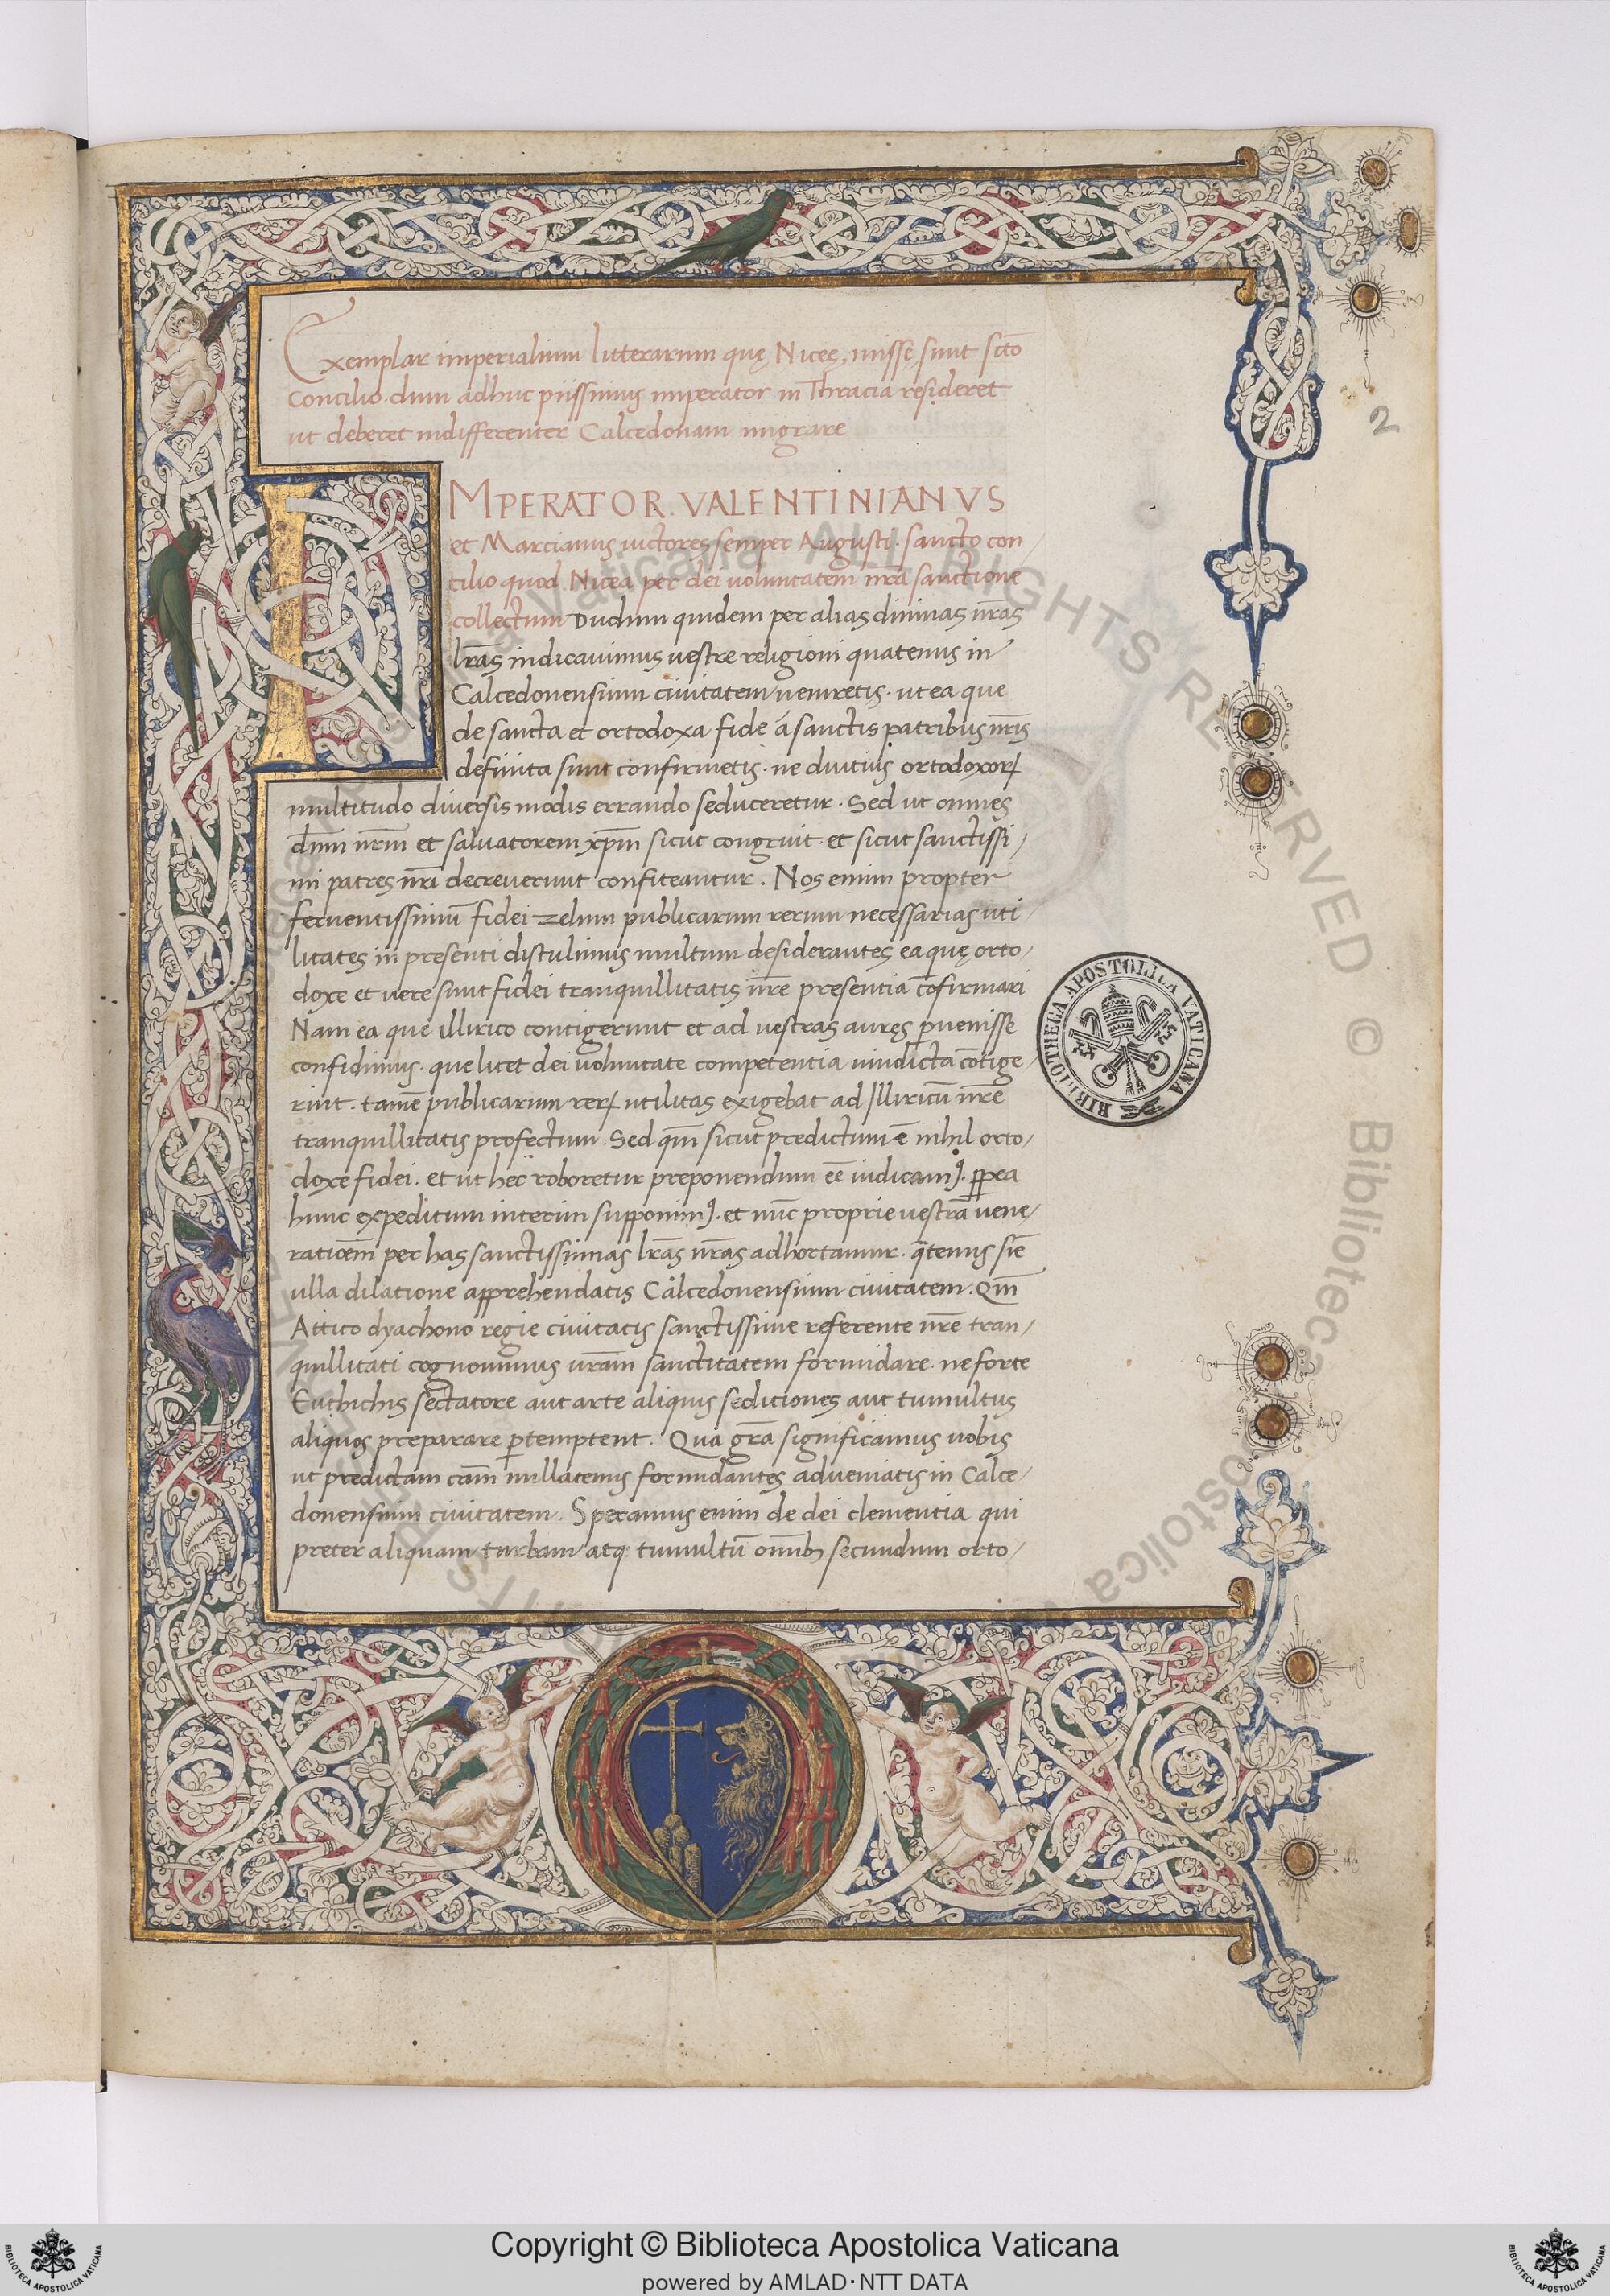 Exemplar imperialium litterarum quę Niceę, missę sunt scto
Concilio dum adhuc piissimus imperator in Thracia resideret
ut deberet indifferenter Calcedonam migrare
2
IMPERATOR. VALENTINIANVS
et Marcianus victores semper Augusti. sancto con/
cilio quod Nicea per dei uoluntatem nr̃a sanctione
collectum Dudum quidem per alias diuinas nr̃as
lr̃as indicauimus uestre religioni quatenus in
Calcedonensium ciuitatem ueniretis. ut ea que
de sancta et ortodoxa fide á sanctis patribus nr̃is
definita sunt confirmetis. ne diutius ortodoxorꝝ
multitudo diuersis modis errando seduceretur. Sed ut omnes
dñm nr̃m et saluatorem xp̃m sicut congruit. et sicut sanctissi/
mi patres nr̃i decreuerunt confiteantur. Nos enim propter
feruentissimũ fidei zelum publicarum rerum necessarias uti/
litates in presenti distulimus multum desiderantes ea quę orto/
doxe et uere sunt fidei tranquillitatis nr̃e presentia cõfirmari
Nam ea que illirico contigerunt et ad uestras aures ꝑuenisse
confidimus. que licet dei uoluntate competentia uindicta cõtige/
rint. tamẽ publicarum rerꝝ utilitas exigebat ad Illiricũ nr̃e
tranquillitatis profectum. Sed qm̃ sicut predictum ẽ nihil orto/
doxe fidei. et ut hec roboretur preponendum eẽ iudicamꝰ. ꝓpea
hunc expeditum interim supponimꝰ. et nũc proprie uestrã uene/
ratiõem per has sanctissimas lr̃as nr̃as adhortamur. q̃tenus siẽ
ulla dilatione apprehendatis Calcedonensium ciuitatem. Qm̃
Attico dyachono regie ciuitatis sanctissime referente nr̃e tran/
quillitati cognouimus ur̃am sanctitatem formidare. ne forte
Euthichis sectatore aut arte aliquis seditiones aut tumultus
aliquos preparare ꝑtemptent. Qua gr̃a significamus uobis
ut predictam cãm nullatenus formidantes adueniatis in Calce/
donensium ciuitatem. Speramus enim de dei clementia qui
preter aliquam turbam atq; tumultũ om̃ibꝫ secundum orto/
BIBLIOTHECA APOSTOLICA VATICANA
Copyright © Biblioteca Apostolica Vaticana
powered by AMLAD·NTT DATA